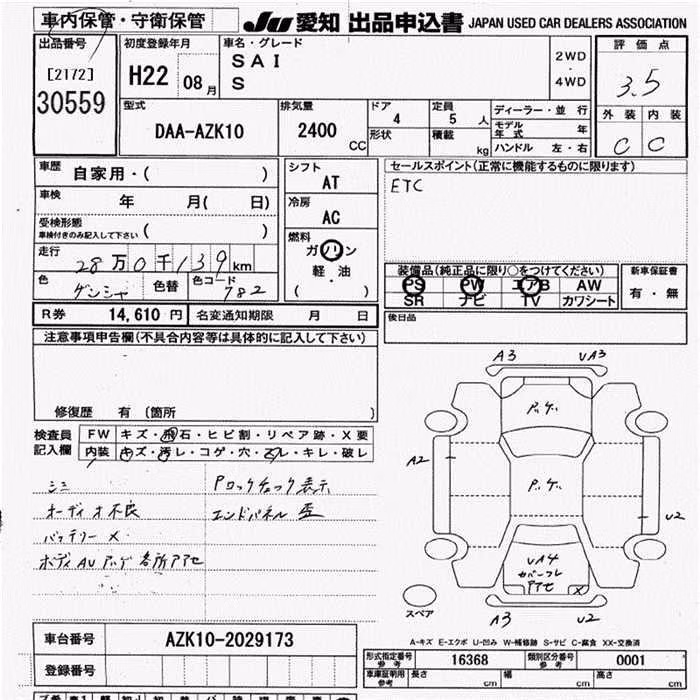 車内保管・守衛保管
JU 愛知 出品申込書 JAPAN USED CAR DEALERS ASSOCIATION
出品番号
[2172]
30559
初度登録年月
H22 08月
車名・グレード
SAI
S
2WD
・
4WD
評価点
3.5
外装 内装
C C
型式
DAA-AZK10
排気量
2400 CC
ドア
4
形状
定員
5 人
積載
kg
ディーラー・並行
モデル年式 年
ハンドル 左・右
車歴 自家用・( )
車検 年 月( 日)
受検形態
車検付きのみ記入して下さい ( )
走行
28万0千139km
色 ゲンシャ 色替 色コード 782
シフト
AT
冷房
AC
燃料
ガソリン
軽・油
( )
セールスポイント(正常に機能するものに限ります)
ETC
装備品(純正品に限り○をつけてください)
PS PW エアB AW
SR ナビ TV カワシート
新車保証書
有・無
後日品
R券 14,610 円 名変通知期限 月 日
注意事項申告欄(不具合内容等は具体的に記入して下さい)
修復歴 有 〔箇所 〕
検査員
記入欄
FW キズ・飛石・ヒビ割・リペア跡・X要
内装 キズ・汚レ・コゲ・穴・スレ・キレ・破レ
シミ
オーディオ不良
バッテリー×
ボディAU アッゲ 各所アアセ
Pロックチェック表示
エンドパネル 歪
A3 UA3
アッゲ
A2
アッゲ
U2
UA4
カバーフレ
アアセ
X
A3 U2
スペア
A-キズ E-エクボ U-凹み W-補修跡 S-サビ C-腐食 XX-交換済
車台番号 AZK10-2029173
登録番号
形式指定番号
参考
16368
類別区分番号
参考
0001
車庫証明用
参考
長さ cm 幅 cm 高さ cm